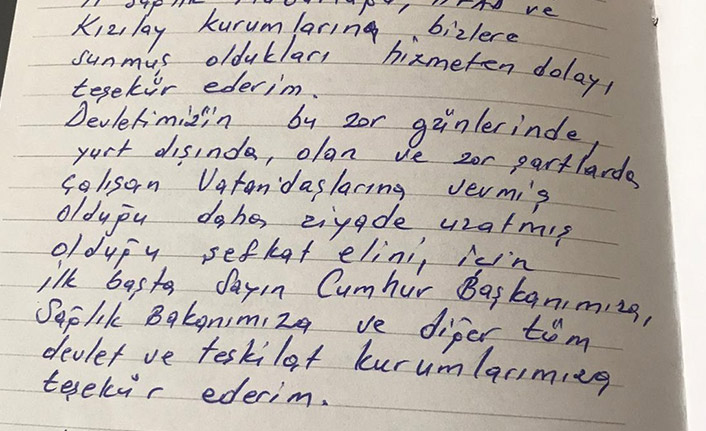 ve
Kızılay kurumlarına bizlere
sunmuş oldukları hizmeten dolayı
teşekür ederim.
Devletimizin bu zor günlerinde,
yurt dışında, olan ve zor şartlarda
çalışan Vatandaşlarına vermiş
olduğu daha ziyade uzatmış
olduğu şefkat elini, için
ilk başta Sayın Cumhur Başkanımıza,
Sağlık Bakanımıza ve diğer tüm
devlet ve teşkilat kurumlarımıza
teşekür ederim.